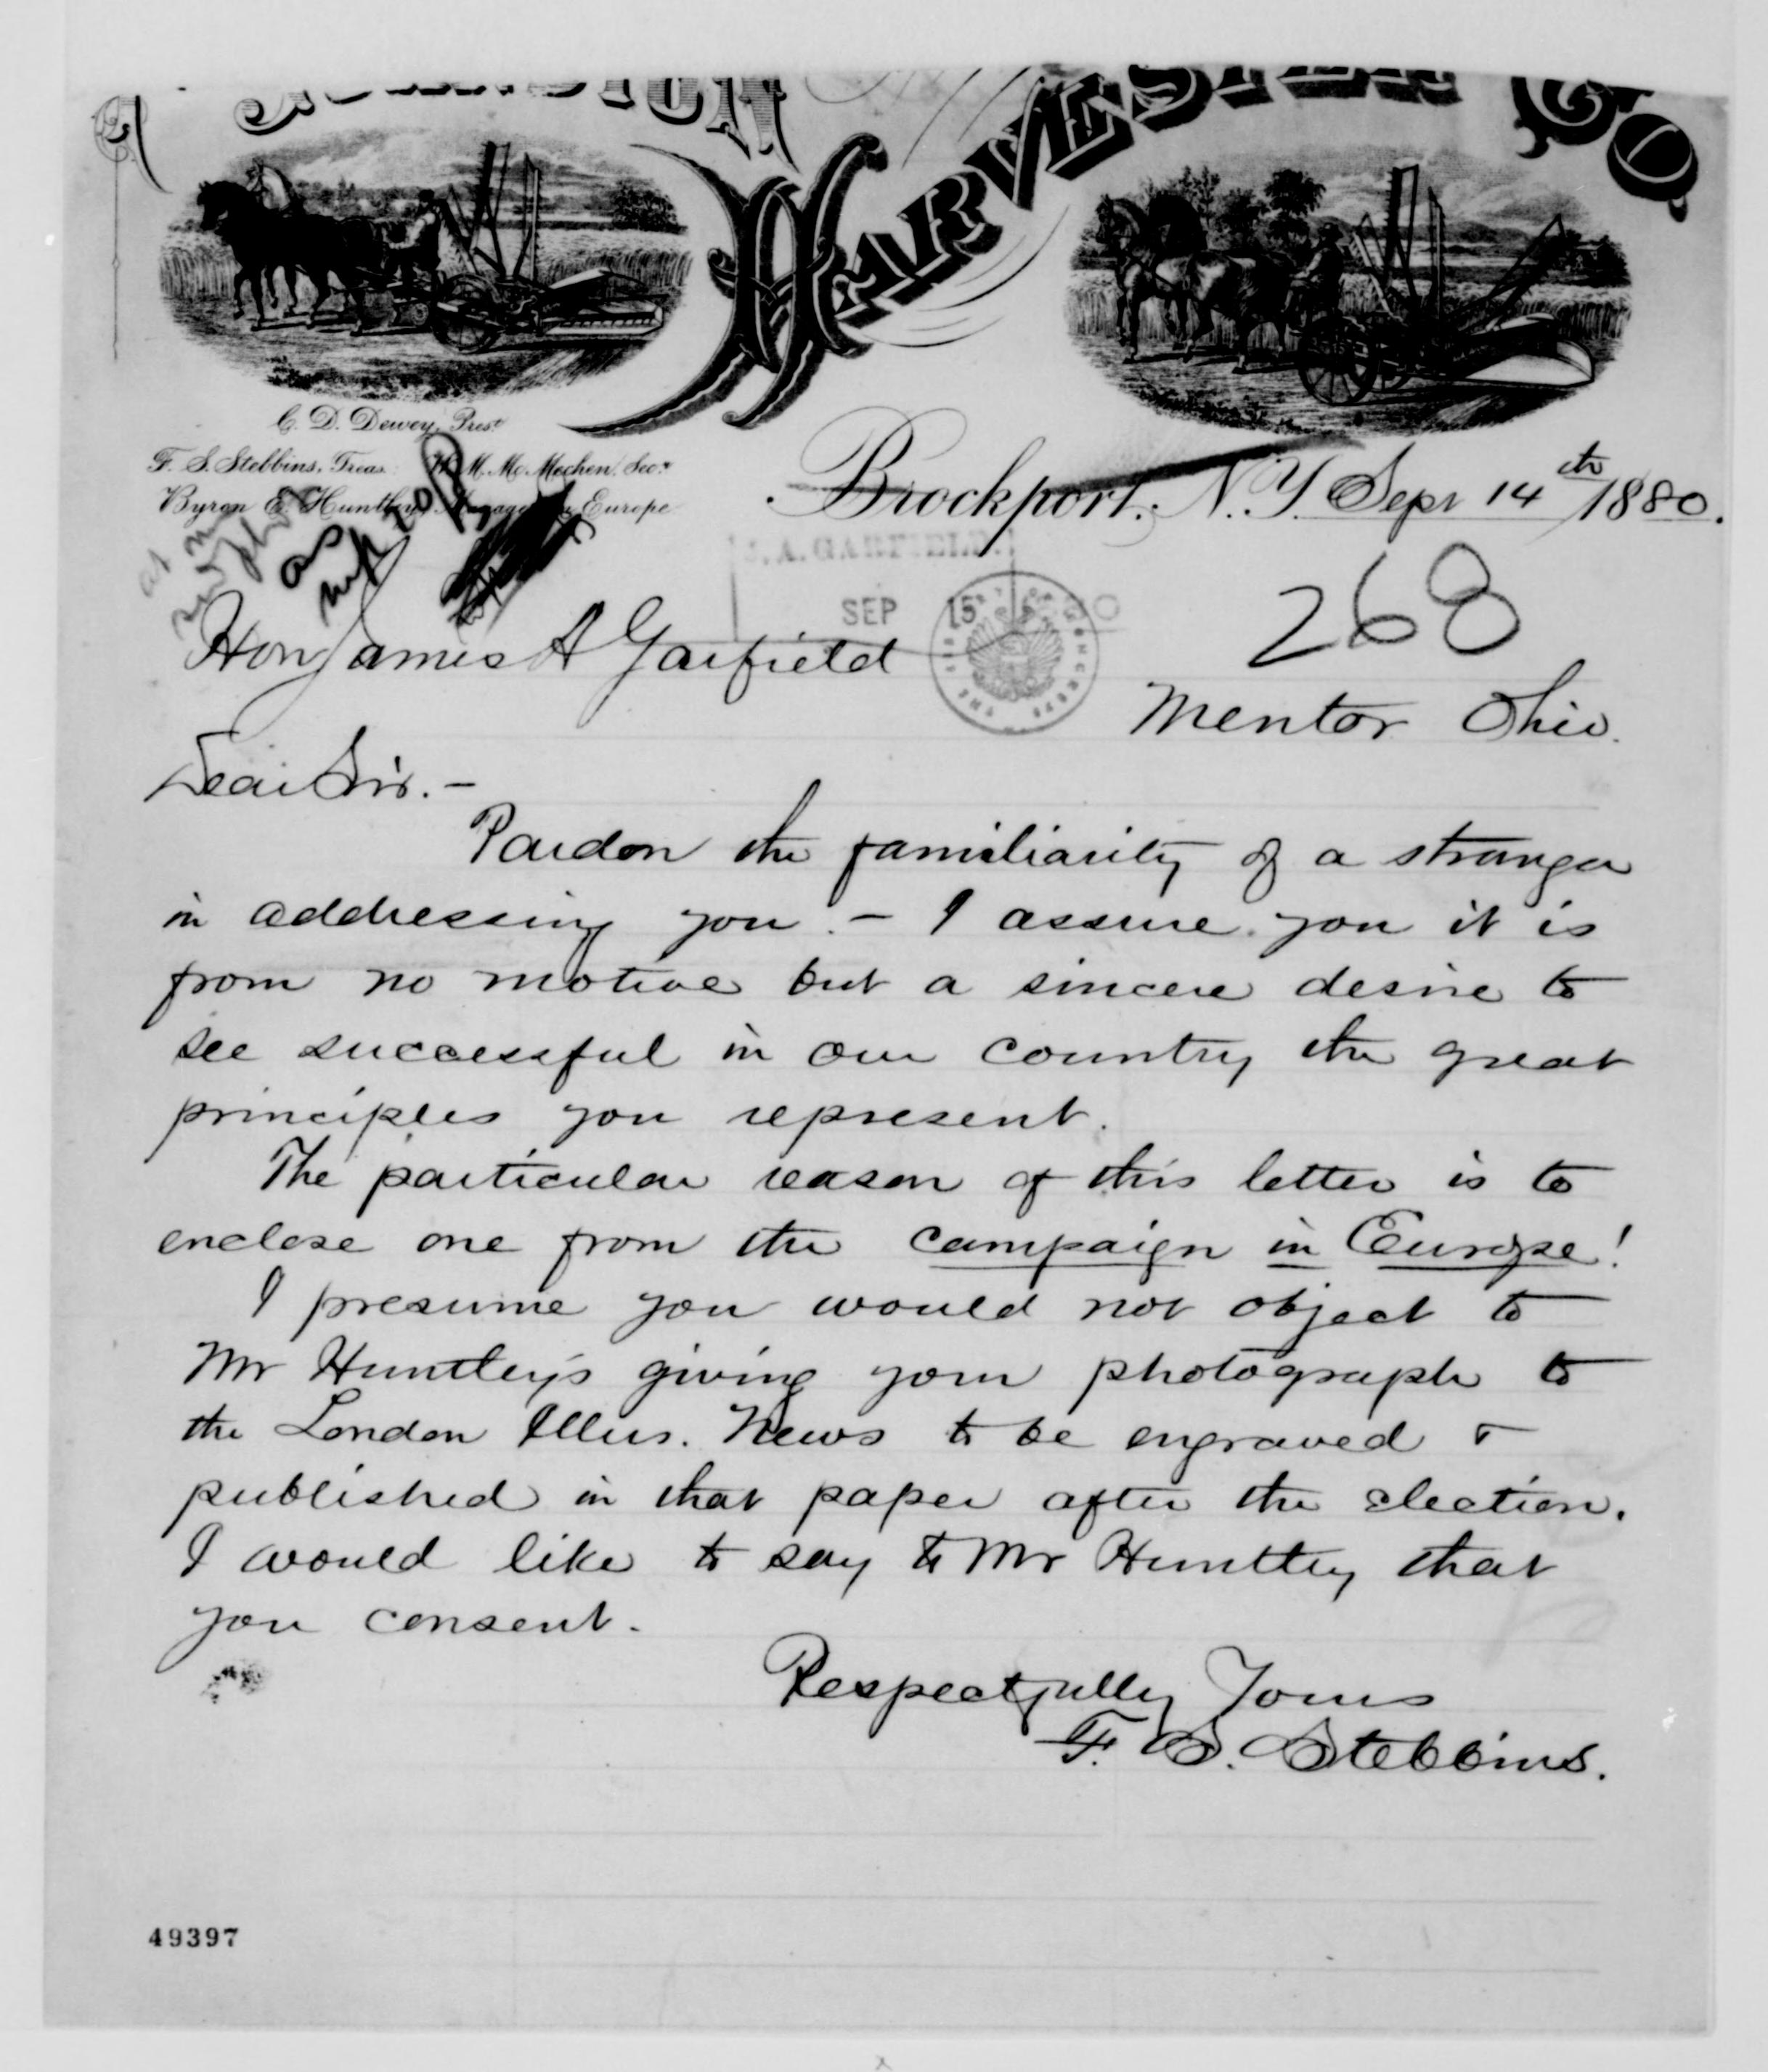 HARVESTER CO
C. D. Dewey, Prest.
F. S. Stebbins, Treas. H. M. McMechen, Secy.
Byron E. Huntley, Manager in Europe
Brockport, N.Y. Sept 14th 1880.
J. A. GARFIELD.
SEP 15
268
Hon James A Garfield
Mentor Ohio.
Dear Sir. –
Pardon the familiarity of a stranger
in addressing you. – I assure you it is
from no motive but a sincere desire to
see successful in our country the great
principles you represent.
The particular reason of this letter is to
enclose one from the campaign in Europe!
I presume you would not object to
Mr Huntley's giving your photograph to
the London Illus. News to be engraved &
published in that paper after the election.
I would like to say to Mr Huntley that
you consent.
Respectfully Yours
F. S. Stebbins.
49397